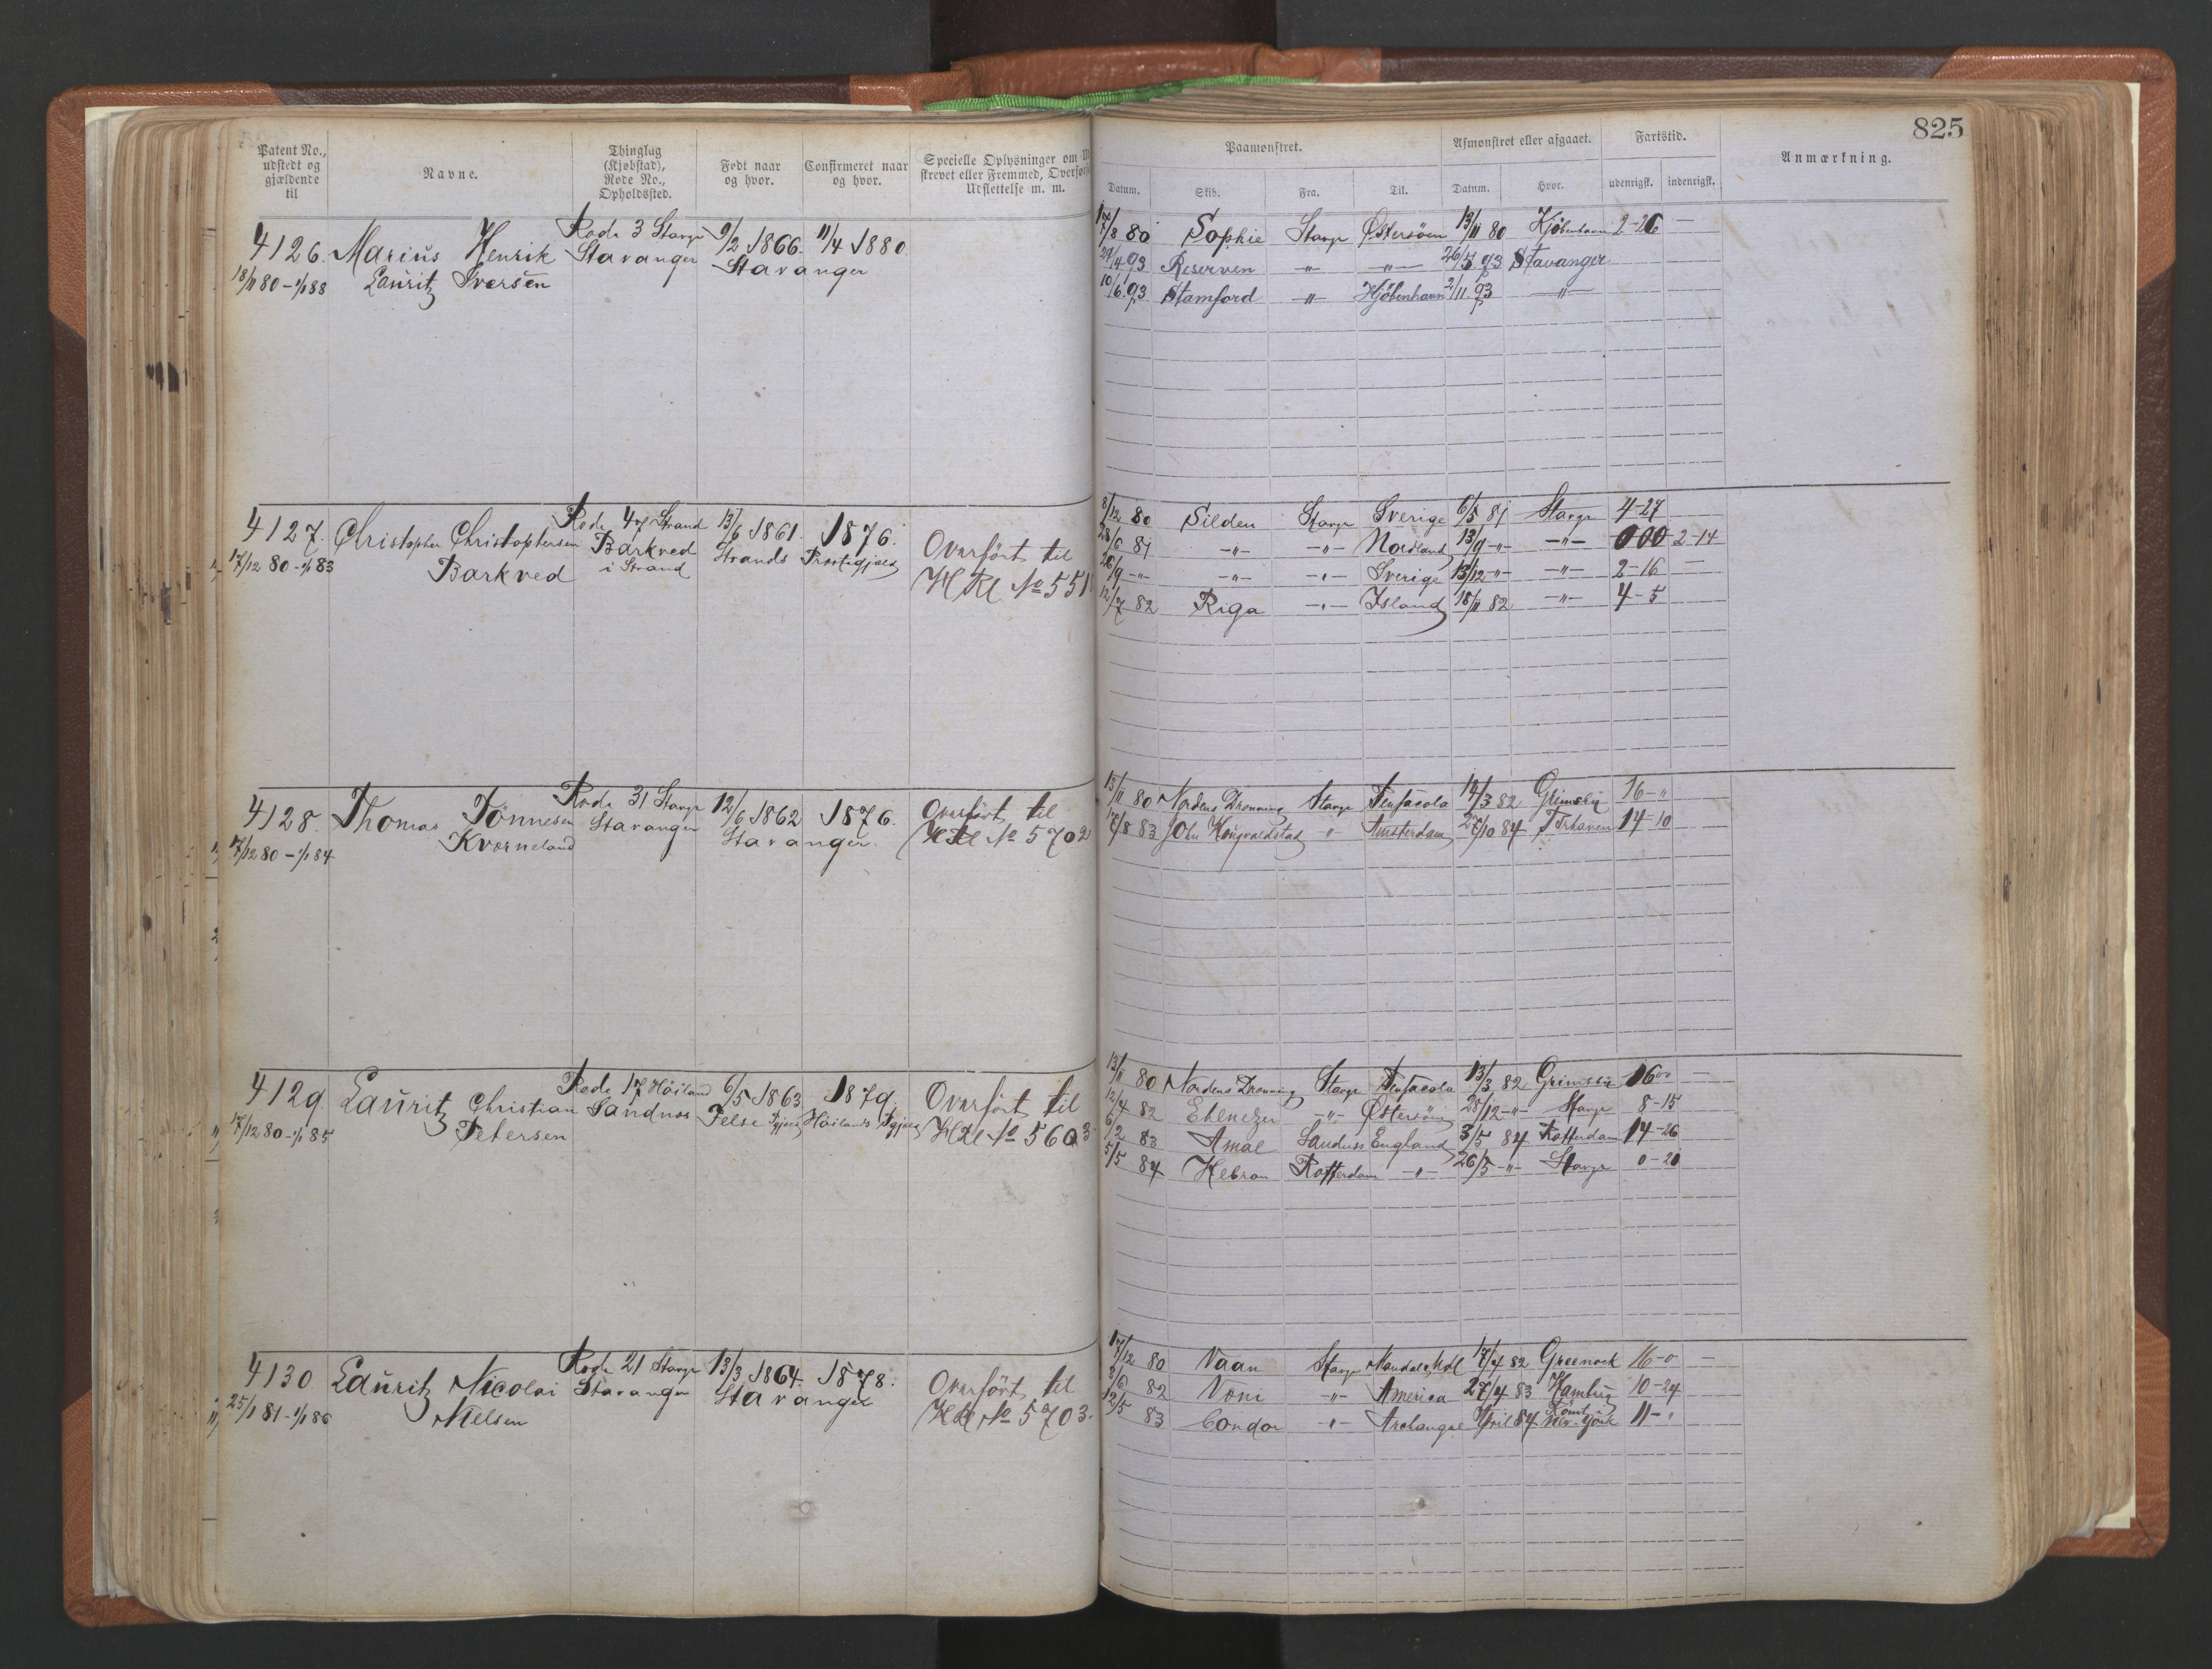 825
Patent No., udstedt og gjældende til
Navne.
Thinglag (Kjøbstad), Rode No., Opholdssted.
Født naar og hvor.
Confirmeret naar og hvor.
Specielle Oplysninger om
skrevet eller Fremmed, Overført
Udslettelse m. m.
Paamønstret.
Afmønstret eller afgaaet.
Fartstid.
Anmærkning.
Datum. Skib. Fra. Til. Datum. Hvor. udenrigsk. indenrigsk.
4126. Marius Henrik Rode 3 Stavgr 9/2 1866. 11/4 1880
18/11 80 - 1/1 88 Lauritz Iversen Stavanger Stavanger
17/8 80 Sophie Stavgr Østersøen 13/11 80 Kjøbenhavn 2-26 —
24/4 93 Reserven -"- -"- 26/5 93 Stavanger
10/6 93 Stamford -"- Kjøbenhavn 2/11 93 -"-
4127. Christopher Christophersen Rode 47 Strand 13/6 1861. 1876.
17/12 80 - 1/1 83 Barkved Barkved i Strand Strands Præstegjæld
Overført til
H Rl No 551
8/12 80 Silden Stavgr Sverige 6/5 81 Stavgr 4-27
28/6 81 -"- -"- Nordland 13/9 -"- -"- 000 2-14
20/9 -"- -"- -"- Sverige 13/12 -"- -"- 2-16 —
12/7 82 Riga -"- Island 18/11 82 -"- 4-5
4128. Thomas Tönnesen Rode 31 Stavgr 12/6 1862 1876.
17/12 80 - 1/1 84 Kvorneland Stavanger Stavanger.
Overført til
H Rl No 5702
13/11 80 Nordens Dronning Stavgr Pensacola 14/3 82 Grimsby 16-"
17/8 83 John Kongvoldstad " Amsterdam 27/10 84 14-10
4129. Lauritz Christian Rode 17 Höiland 6/5 1863 1879.
17/12 80 - 1/1 85 Petersen Sandnæs Höilands Pgjeld
Overført til
H Rl No 5603
13/11 80 Nordens Dronning Stavgr Pensacola 13/3 82 Grimsby 16 00 —
12/4 82 Ebenezer -"- Østersøen 28/12 -"- Stavgr 8-15
6/2 83 Amal Sandnæs England 3/5 84 Rotterdam 14-26
5/5 84 Hebron Rotterdam -"- 26/5 -"- Stavgr 0-21
4130 Lauritz Nicolai Rode 21 Stavgr 13/3 1864. 1878.
25/1 81 - 1/1 86 Nielsen Stavanger Stavanger
Overført til
H Rl No 5703.
17/12 80 Vaan Stavgr 17/4 82 Greenock 16-0 —
3/6 82 Voni -"- America 27/4 83 Hambrg 10-24
12/5 83 Condor " Archangel April 84 Rømt i New-York 11-"